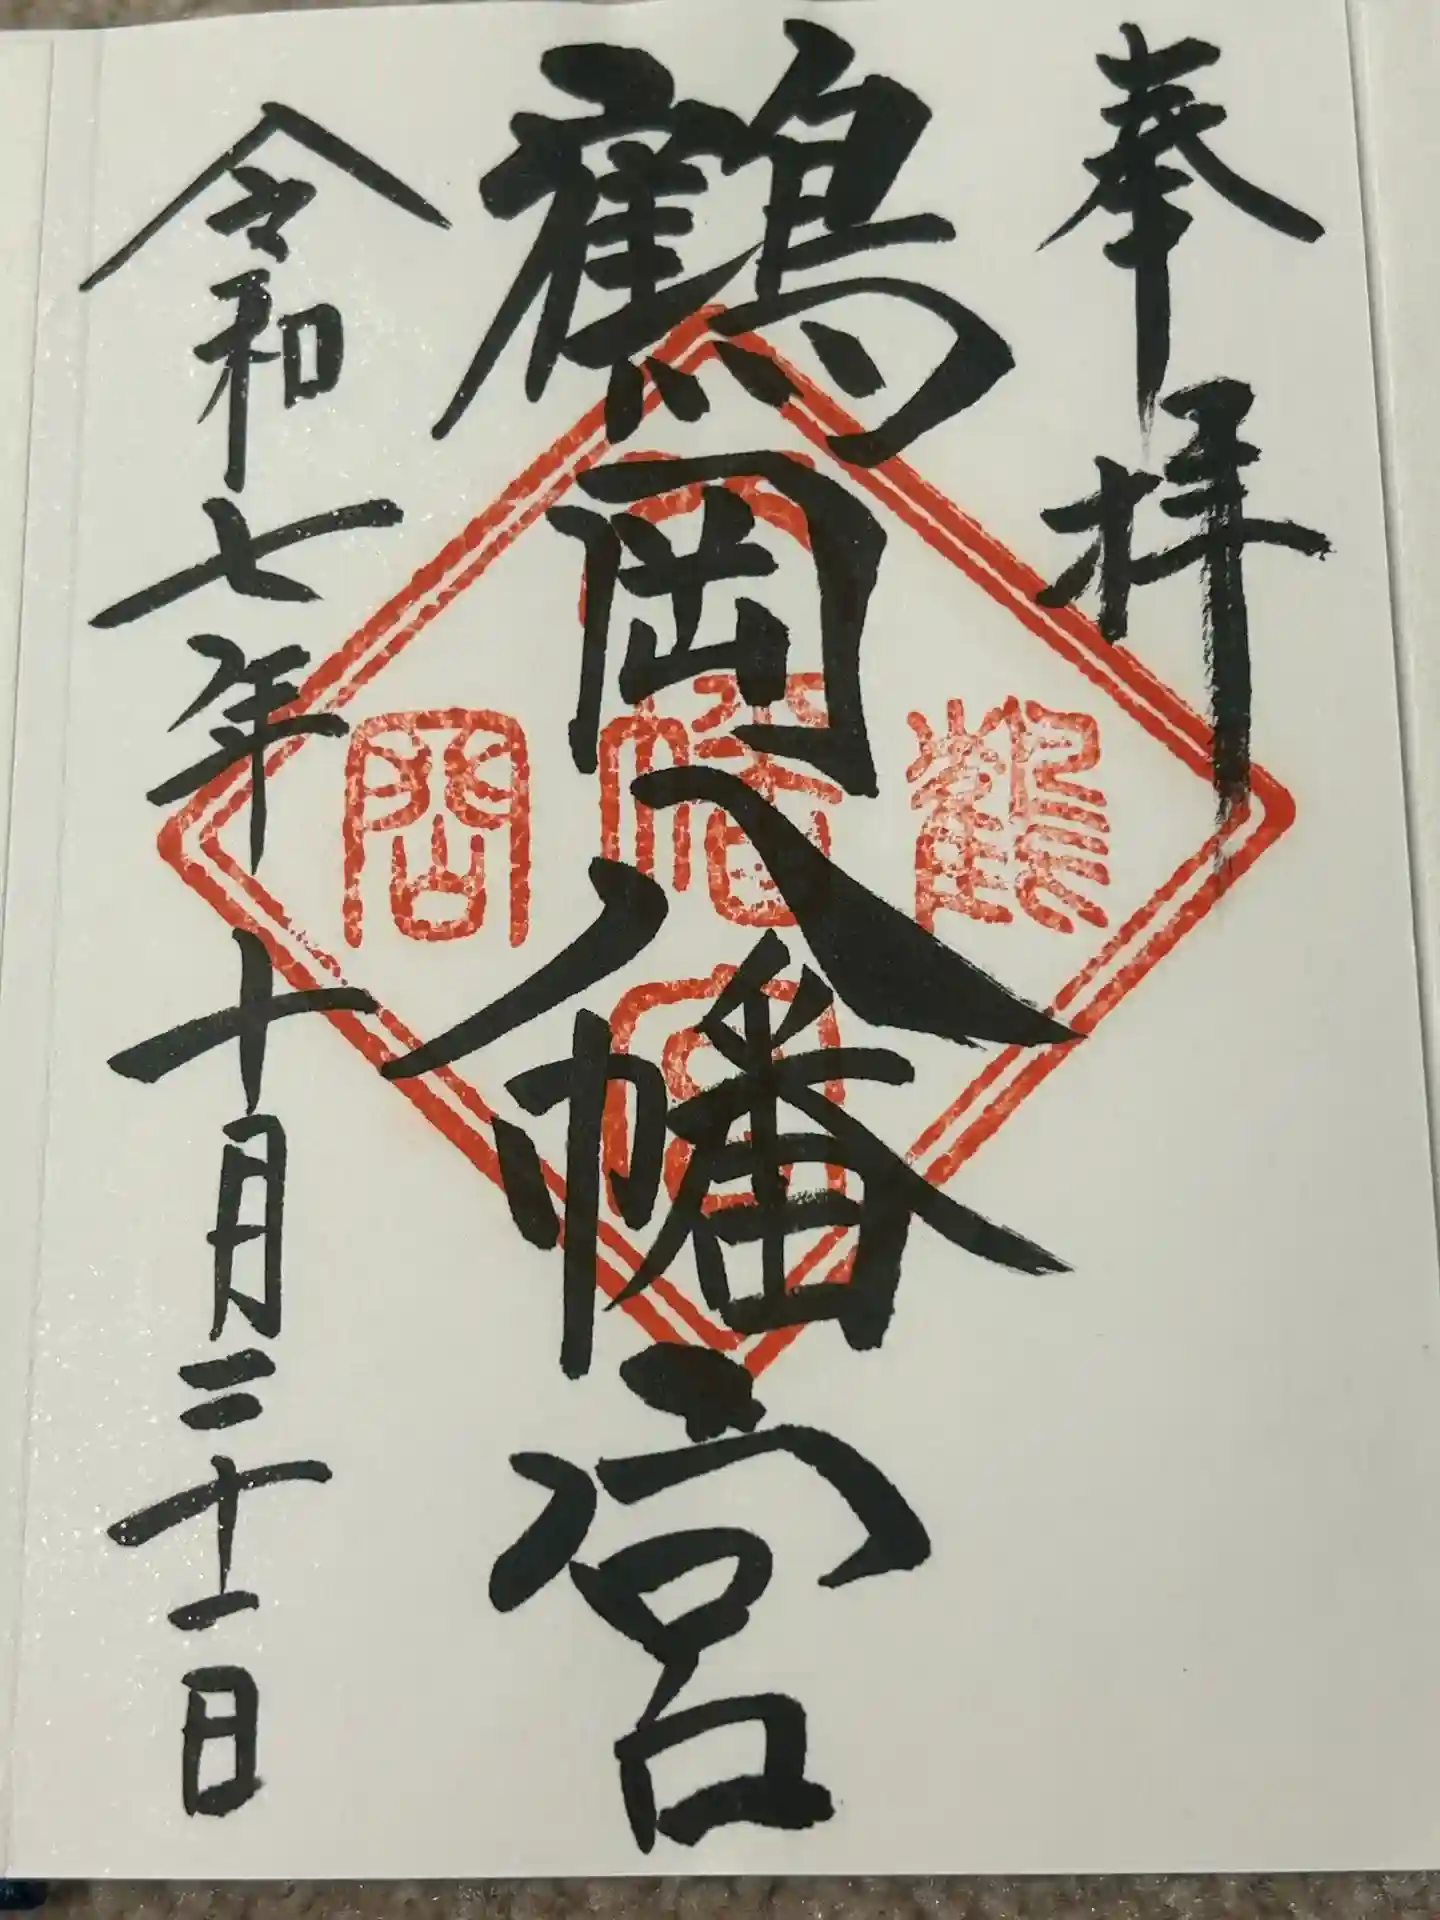 奉拝
鶴岡八幡宮
令和七年十月三十一日
鶴岡八幡宮